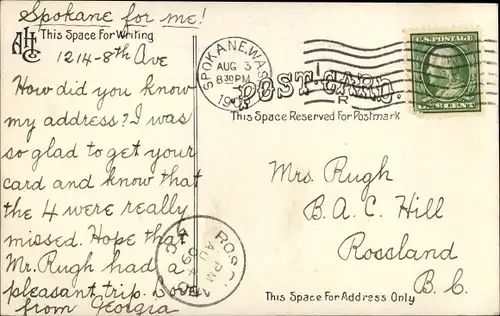 Spokane for me!
AHC
This Space For Writing
1214-8th Ave
How did you know
my address? I was
so glad to get your
card and know that
the 4 were really
missed. Hope that
Mr. Rugh had a
pleasant trip.
from Georgia
SPOKANE, WASH
AUG 3
8:30 PM
U.S. POSTAGE
POST CARD.
This Space Reserved For Postmark
Mrs. Rugh
B. A. C. Hill
Rossland
B. C.
PM
AU 4
09
This Space For Address Only